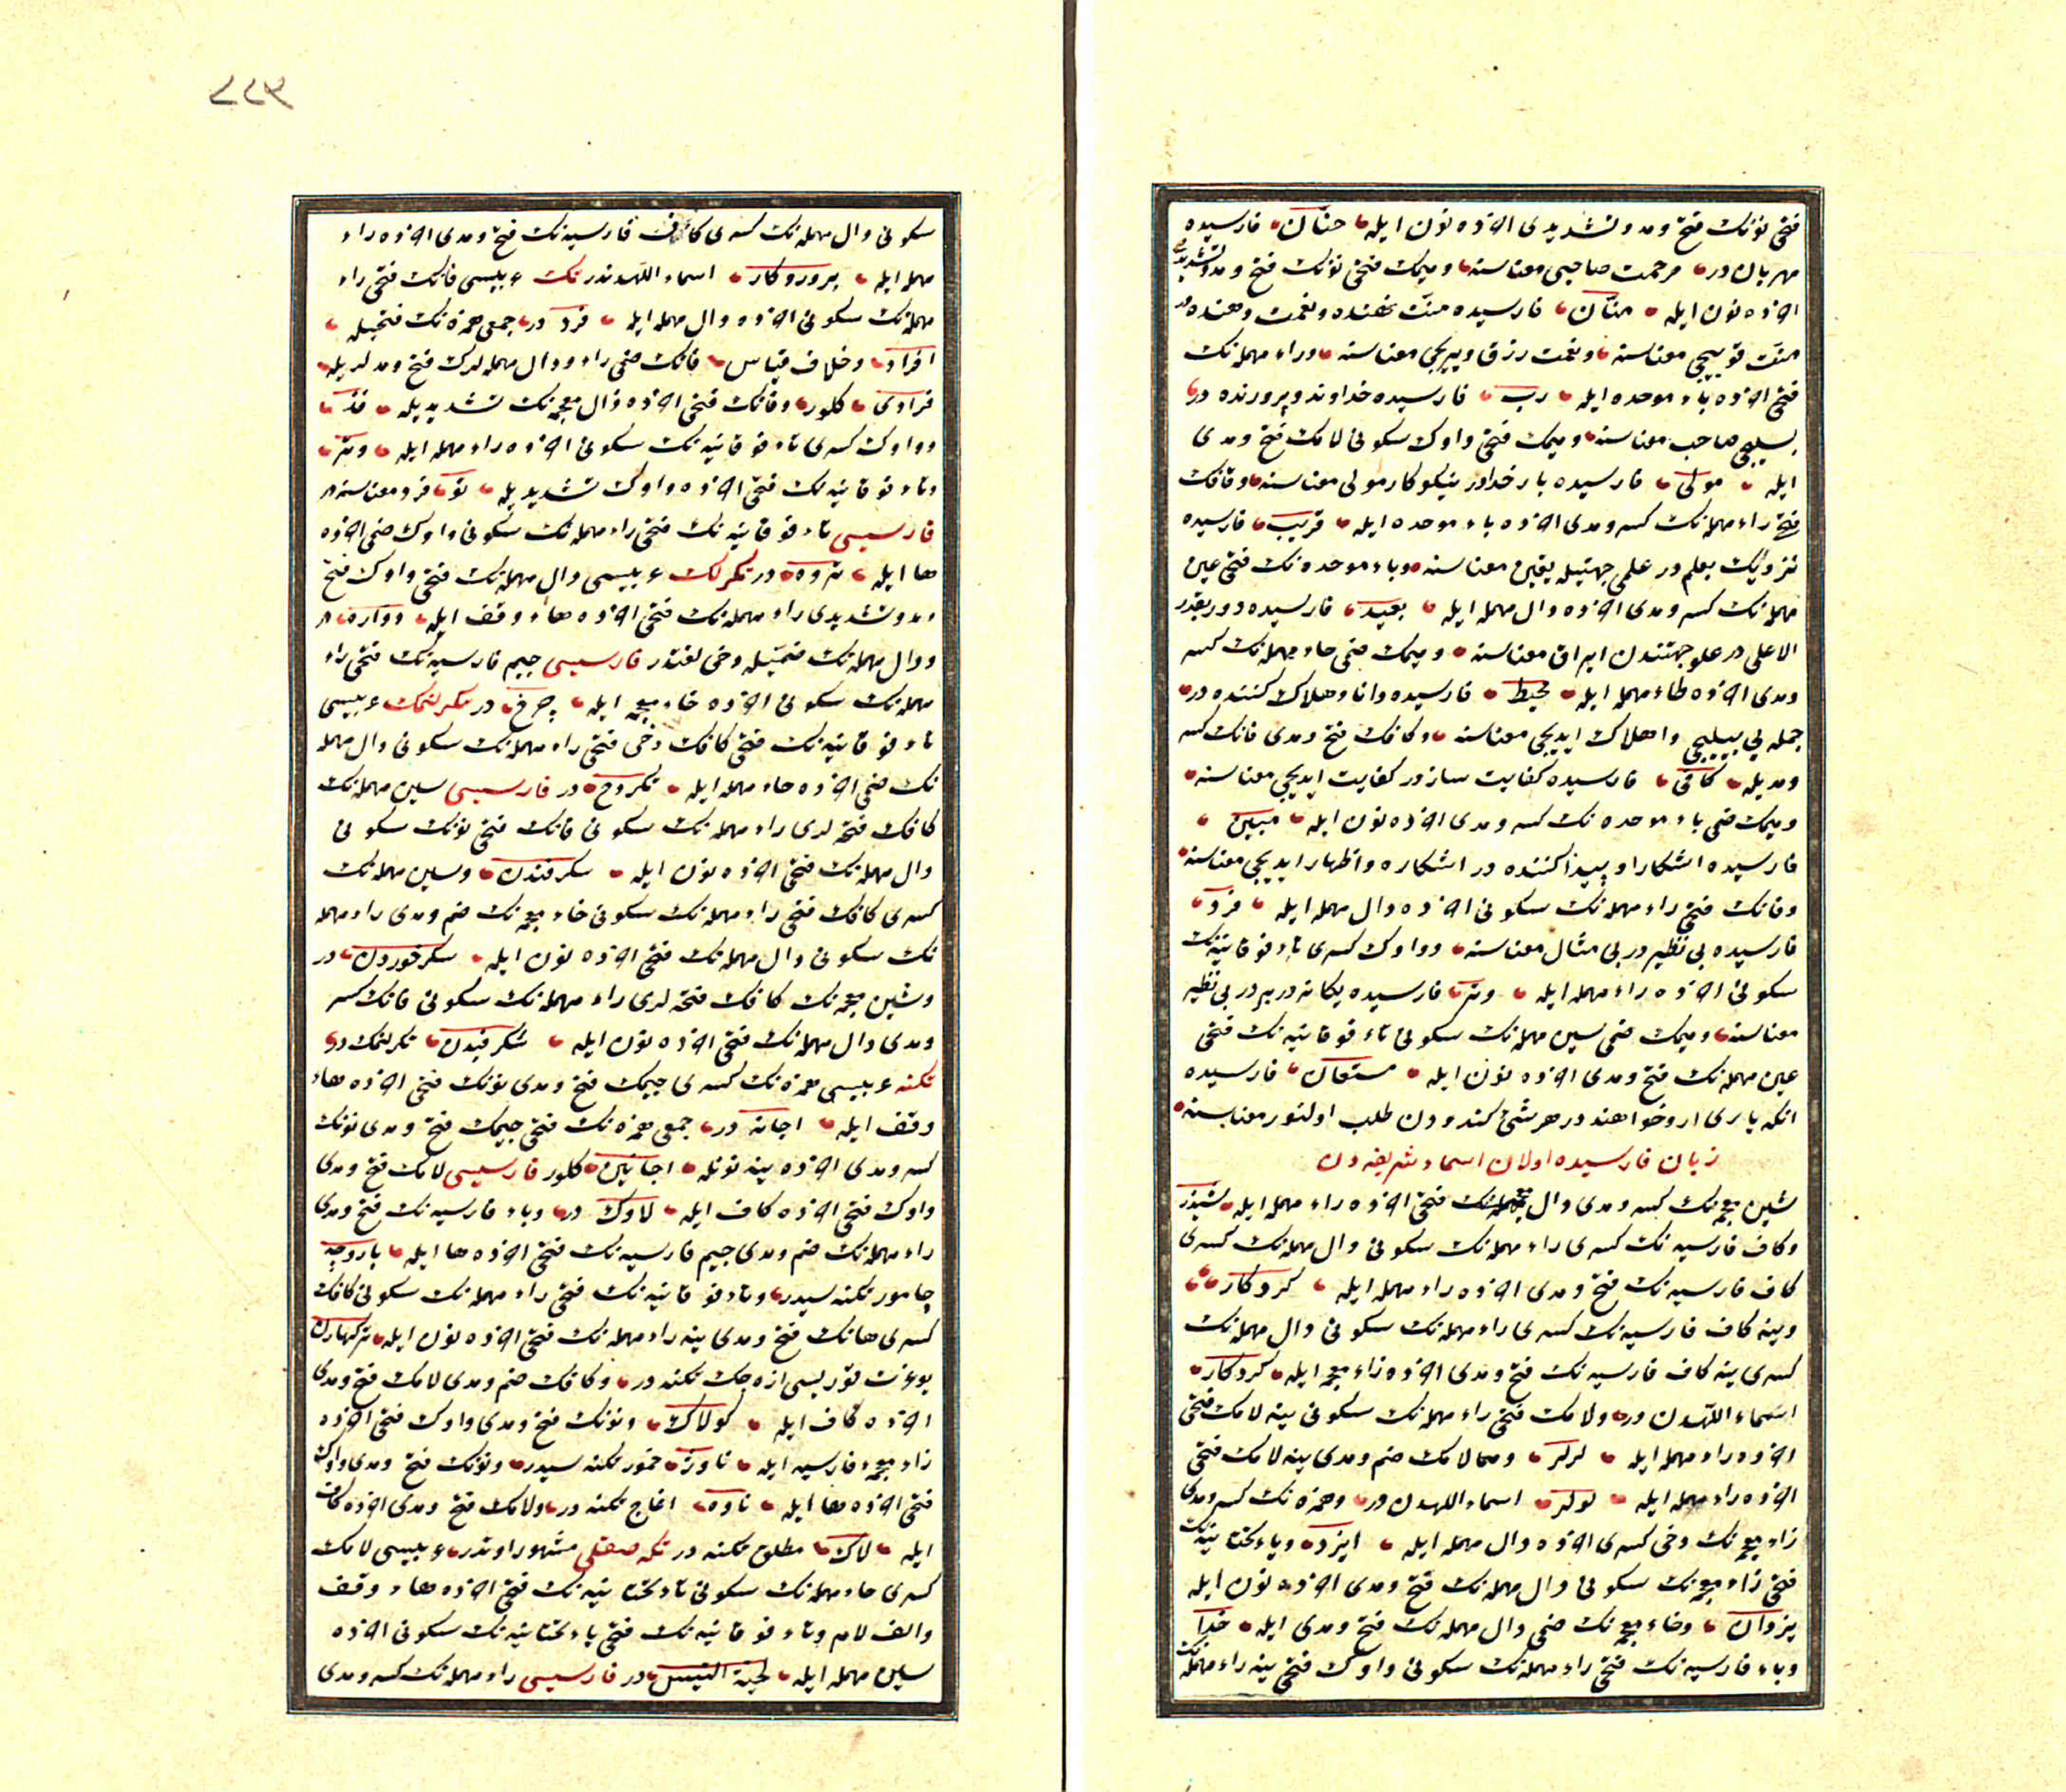 فتحى نونك فتح و مد و تشديدى اخذه نون ايله حنّان فارسيده
مهربان در مرحمت صاحبى معناسنه و ميمك فتحى نونك فتح و مد و تشديدى
اخذه نون ايله منّان فارسيده منّت نهنده و نعمت دهنده در
منّت قويیجى معناسنه و نعمت رزق ويريجى معناسنه و راء مهمله نك
فتحى اخذه باء موحده ايله ربّ فارسيده خداوند و پرورنده در
بسليجى صاحب معناسنه و ميمك فتحى واوك سكونى لامك فتح و مدى
ايله مولى فارسيده بار خداور نيكوكار مولى معناسنه و قافك
فتح راء مهمله نك كسر و مدى اخذه باء موحده ايله قريب فارسيده
نزديك بعلم در علمى جهتيله يقين معناسنه و باء موحده نك فتحى عين
مهمله نك كسر و مدى اخذه دال مهمله ايله بعيد فارسيده دور بقدر
الاعلى در علو جهتندن ايراق معناسنه و ميمك ضمى حاء مهمله نك كسر
و مدى اخذه طاء مهمله ايله محيط فارسيده دانا و هلاك كننده در
جمله يى بيليجى و اهلاك ايديجى معناسنه و كافك فتح و مدى فانك كسر
و مديله كافى فارسيده كفايت سازدر كفايت ايديجى معناسنه
و ميمك ضمى باء موحده نك كسر و مدى اخذه نون ايله مبين
فارسيده اشكارا و پيدا كننده در اشكاره و اظهار ايديجى معناسنه
و فانك فتحى راء مهمله نك سكونى اخذه دال مهمله ايله فرد
فارسيده بى نظير در بى مثال معناسنه و واوك كسرى تاء فوقانيه نك
سكونى اخذه راء مهمله ايله وتر فارسيده يكانه در بر در بى نظير
معناسنه و ميمك ضمى سين مهمله نك سكونى تاء فوقانيه نك فتحى
عين مهمله نك فتح و مدى اخذه نون ايله مستعان فارسيده
انكه يارى ازو خواهند در هر شئ كندودن طلب اولنور معناسنه
زبان فارسيده اولان اسماء شريفه دن
شين معجمه نك كسر و مدى دال معجمه نك فتحى اخذه راء مهمله ايله شيذر
و كاف فارسيه نك كسرى راء مهمله نك سكونى دال مهمله نك كسرى
كاف فارسيه نك فتح و مدى اخذه راء مهمله ايله كردكار
و ينه كاف فارسيه نك كسرى راء مهمله نك سكونى دال مهمله نك
كسرى ينه كاف فارسيه نك فتح و مدى اخذه زاء معجمه ايله كردكاز
اسماء اللهدن در و لامك فتحى راء مهمله نك سكونى ينه لامك فتحى
اخذه راء مهمله ايله لرلر و هما لامك ضم و مدى ينه لامك فتحى
اخذه راء مهمله ايله لولر اسماء اللهدن در و همزه نك كسر و مدى
زاء معجمه نك دخى كسرى اخذه دال مهمله ايله ايزد و ياء تحتانيه نك
فتحى زاء معجمه نك سكونى دال مهمله نك فتح و مدى اخذه نون ايله
يزدان و خاء معجمه نك ضمى دال مهمله نك فتح و مدى ايله خدا
و باء فارسيه نك فتحى راء مهمله نك سكونى واوك فتحى ينه راء مهمله نك
٢٢٩
سكونى دال مهمله نك كسرى كاف فارسيه نك فتح و مدى اخذه راء
مهمله ايله پروردكار اسماء اللهدندر تك عربيسى فانك فتحى راء
مهمله نك سكونى اخذه دال مهمله ايله فرد در جمعى همزه نك فتحيله
افراد و خلاف قياس فانك ضمى راء و دال مهمله لرك فتح و مدلريله
فرادى كلور و فانك فتحى اخذه ذال معجمه نك تشديديله فذّ
و واوك كسرى تاء فوقانيه نك سكونى اخذه راء مهمله ايله وتر
و تاء فوقانيه نك فتحى اخذه واوك تشديديله توّ فرد معناسنه در
فارسيسى تاء فوقانيه نك فتحى راء مهمله نك سكونى واوك ضمى اخذه
ها ايله تروه در تكرلك عربيسى دال مهمله نك فتحى واوك فتح
و مد و تشديدى راء مهمله نك فتحى اخذه هاء وقف ايله دوّاره در
و دال مهمله نك ضميله دخى لغتدر فارسيسى جيم فارسيه نك فتحى راء
مهمله نك سكونى اخذه خاء معجمه ايله چرخ در تكرلنمك عربيسى
تاء فوقانيه نك فتحى كافك دخى فتحى راء مهمله نك سكونى دال مهمله
نك ضمى اخذه حاء مهمله ايله تكردح در فارسيسى سين مهمله نك
كافك فتحه لرى راء مهمله نك سكونى فانك فتحى نونك سكونى
دال مهمله نك فتحى اخذه نون ايله سكرفندن و سين مهمله نك
كسرى كافك فتحى راء مهمله نك سكونى خاء معجمه نك ضم و مدى راء مهمله
نك سكونى دال مهمله نك فتحى اخذه نون ايله سكرخوردن در
و شين معجمه نك كافك فتحه لرى راء مهمله نك سكونى فانك كسر
و مدى دال مهمله نك فتحى اخذه نون ايله شكرفيدن تكرلنمك در
تكنه عربيسى همزه نك كسرى جيمك فتح و مدى نونك فتحى اخذه هاء
وقف ايله اجانه در جمعى همزه نك فتحى جيمك فتح و مدى نونك
كسر و مدى اخذه ينه نونله اجانين كلور فارسيسى لامك فتح و مدى
واوك فتحى اخذه كاف ايله لاوك در و باء فارسيه نك فتح و مدى
راء مهمله نك ضم و مدى جيم فارسيه نك فتحى اخذه ها ايله پاروچه
چامور تكنه سيدر و تاء فوقانيه نك فتحى راء مهمله نك سكونى كافك
كسرى هانك فتح و مدى ينه راء مهمله نك فتحى اخذه نون ايله تركهارن
در و كافك ضم و مدى لامك فتح و مدى
اخذه كاف ايله كولاك و نونك فتح و مدى واوك فتحى اخذه
زاء معجمه فارسيه ايله ناوژ خمور تكنه سيدر و نونك فتح و مدى واوك
فتحى اخذه ها ايله ناوه اغاج تكنه در و لامك فتح و مدى اخذه كاف
ايله لاك مطلق تكنه در تكه صقلى مشهور اوتدر عربيسى لامك
كسرى حاء مهمله نك سكونى ياء تحتانيه نك فتحى اخذه هاء وقف
و الف لام و تاء فوقانيه نك فتحى ياء تحتانيه نك سكونى اخذه
سين مهمله ايله لحية التيس در فارسيسى راء مهمله نك كسر و مدى